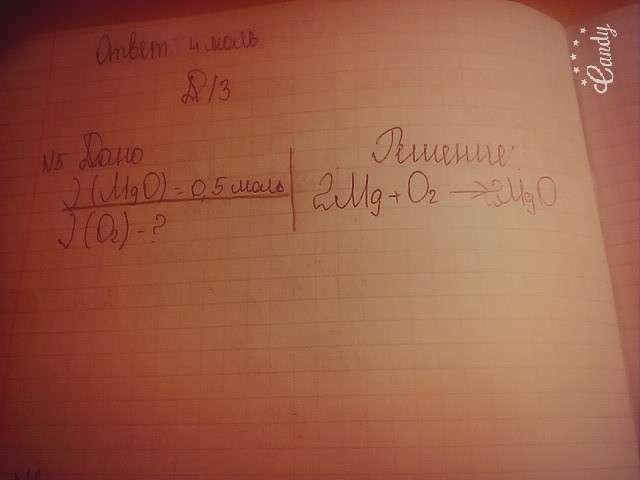 Ответ: 4 моль
Д/З
№5 Дано
ν(MgO) = 0,5 моль
ν(O₂) - ?
Решение:
2Mg + O₂ → 2MgO
Candy